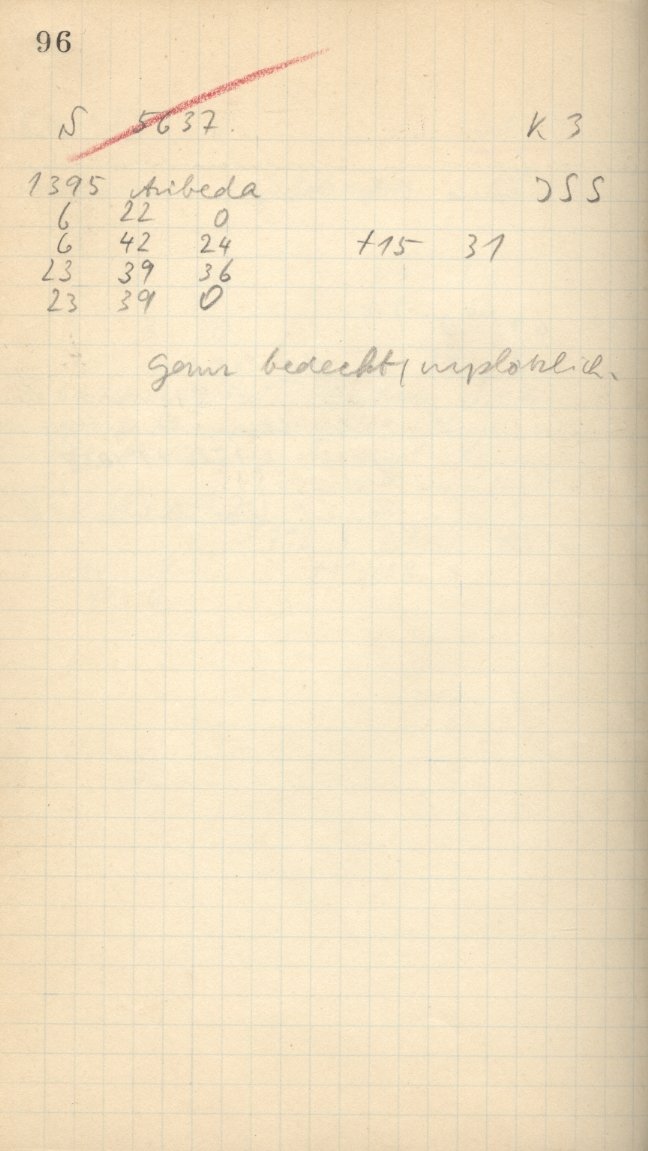 96
N 5637. K 3
1395 Aribeda JSS
6 22 0
6 42 24 +15 31
23 39 36
23 39 0
ganz bedeckt, urplötzlich.